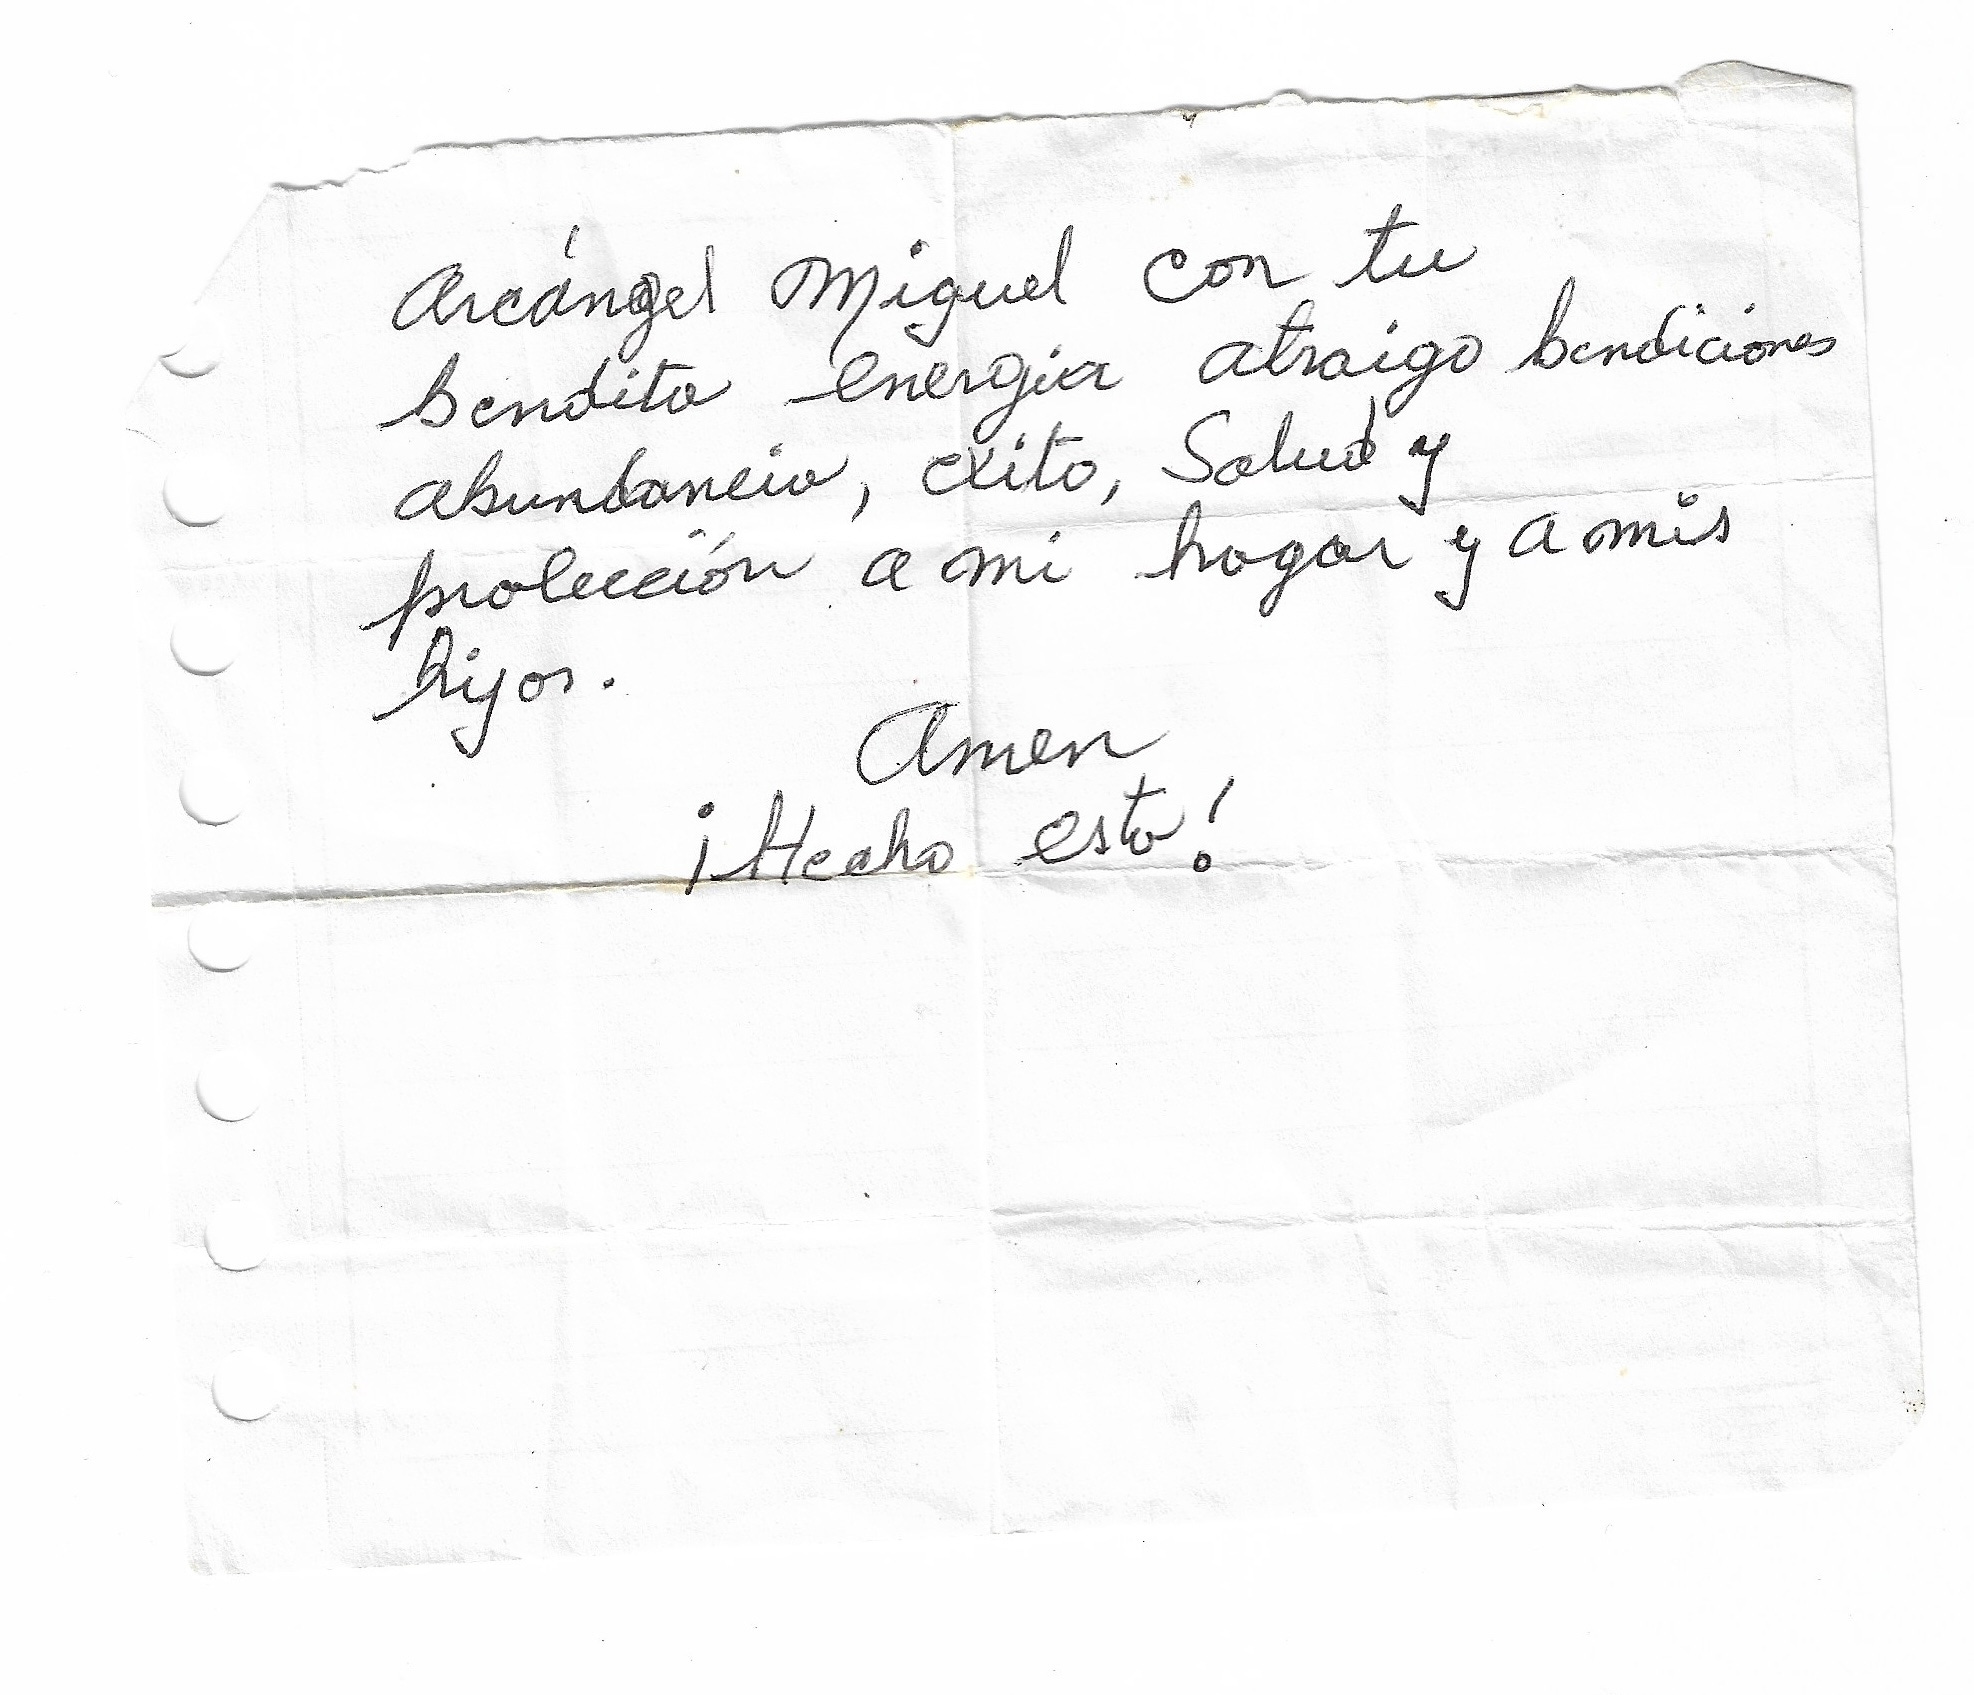 Arcángel Miguel con tu
bendita energia atraigo bendiciones
abundancia, exito, Salud y
protección a mi hogar y a mis
hijos.
Amen
¡Hecho esta!